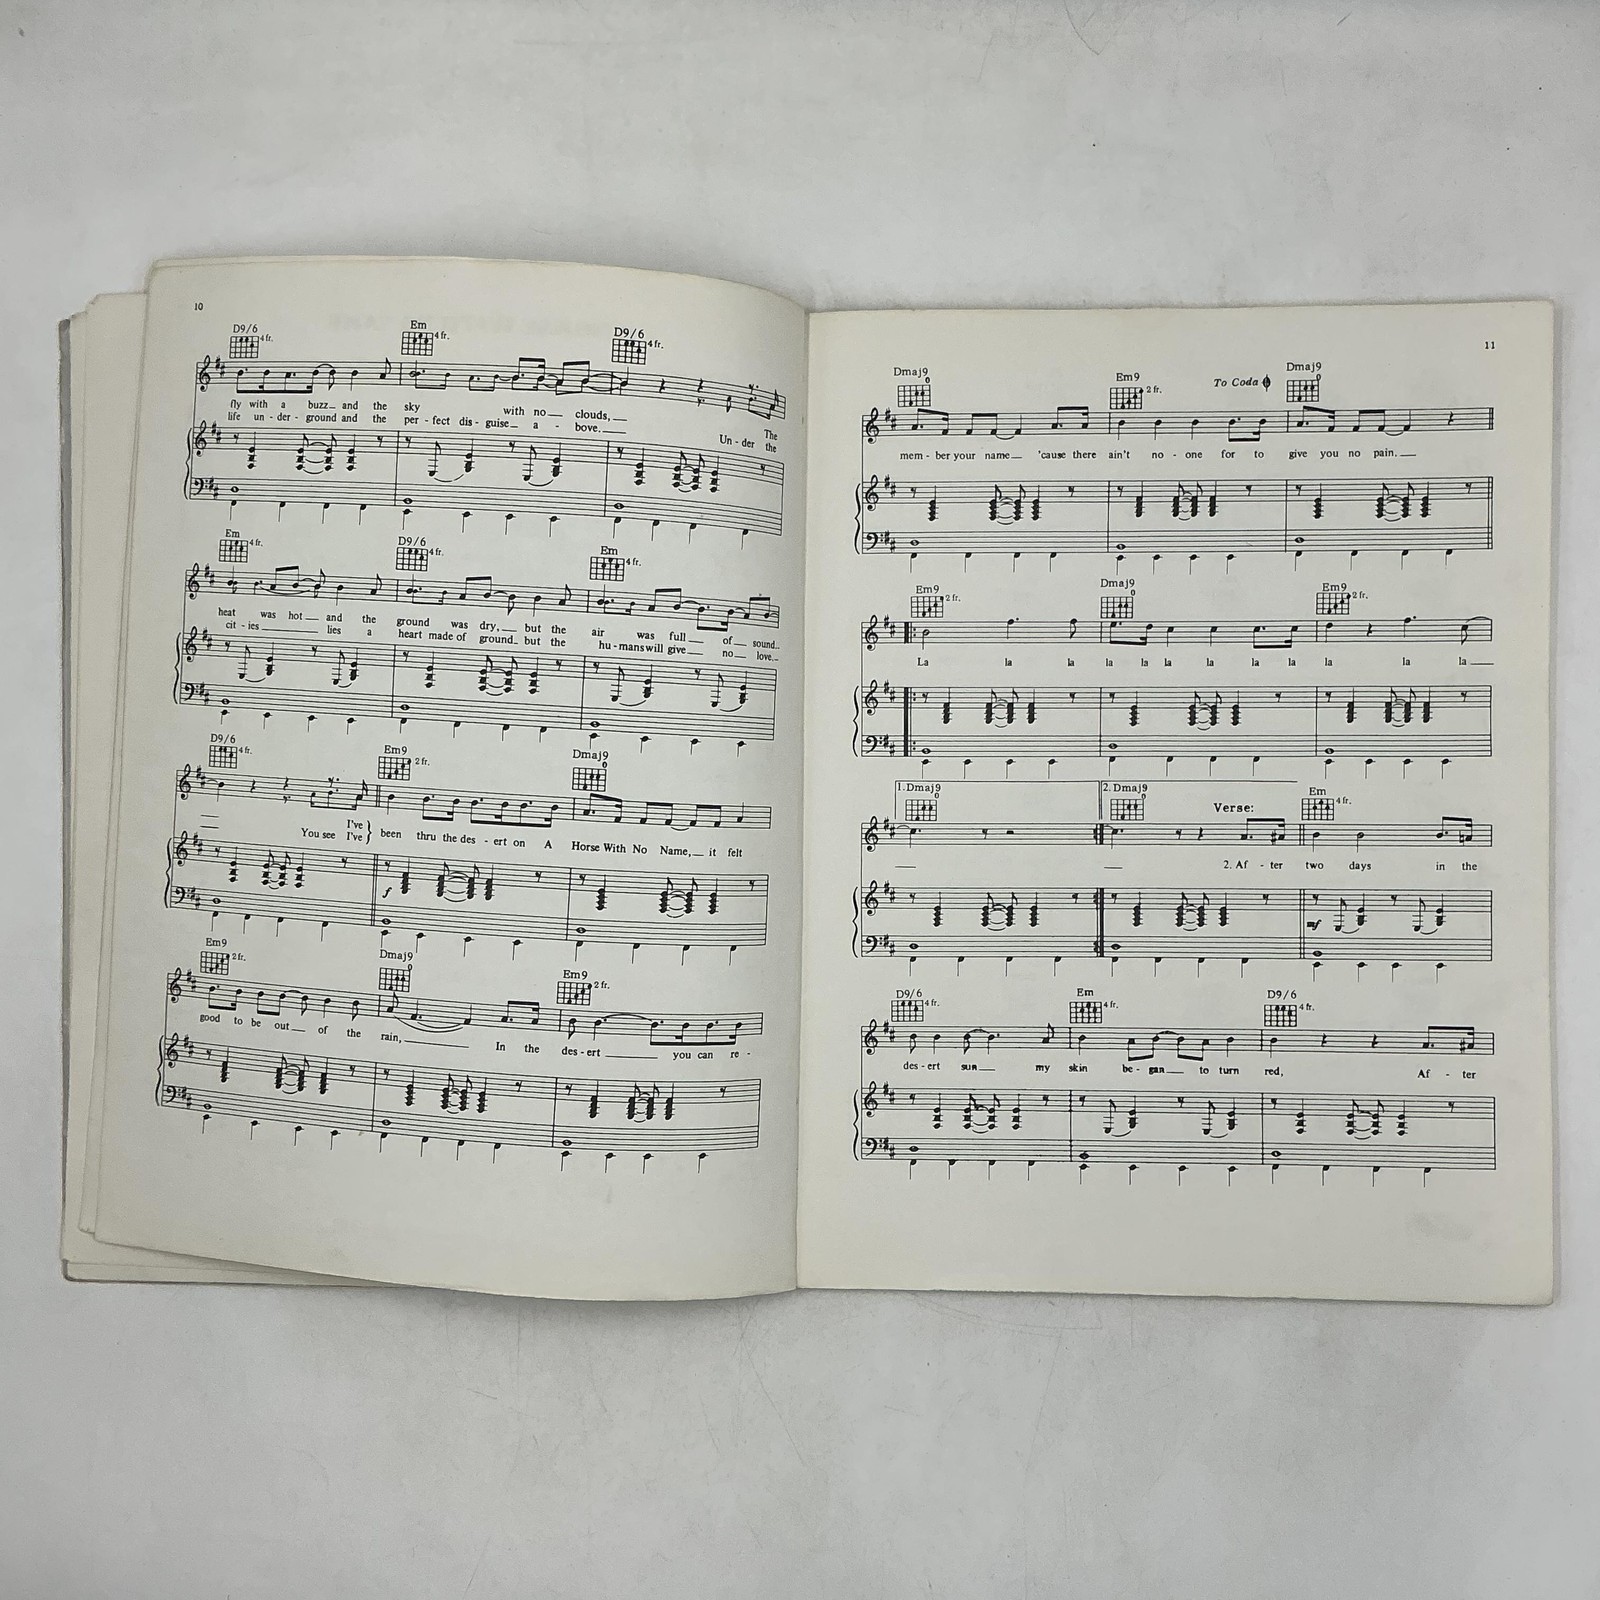 10
D9/6 4 fr. Em 4 fr. D9/6 4 fr.
fly with a buzz_ and the sky with no_ clouds,_ The
life un-der-ground and the per-fect dis-guise_ a-bove._ Un-der the
Em 4 fr. D9/6 4 fr. Em 4 fr.
heat was hot_ and the ground was dry,_ but the air was full_ of_ sound._
cit-ies_ lies a heart made of ground_ but the hu-mans will give_ no_ love._
D9/6 4 fr. Em9 2 fr. Dmaj9 0
I've
You see I've} been thru the des-ert on A Horse With No Name,_ it felt
f
Em9 2 fr. Dmaj9 0 Em9 2 fr.
good to be out_ of the rain,_ In the des-ert_ you can re-
11
Dmaj9 0 Em9 2 fr. To Coda Dmaj9 0
mem-ber your name_ 'cause there ain't no-one for to give you no pain._
Em9 2 fr. Dmaj9 0 Em9 2 fr.
La la la la la la la la la la la la_
1. Dmaj9 0 2. Dmaj9 0 Verse: Em 4 fr.
2. Af-ter two days in the
mf
D9/6 4 fr. Em 4 fr. D9/6 4 fr.
des-ert sun_ my skin be-gan_ to turn red, Af-ter